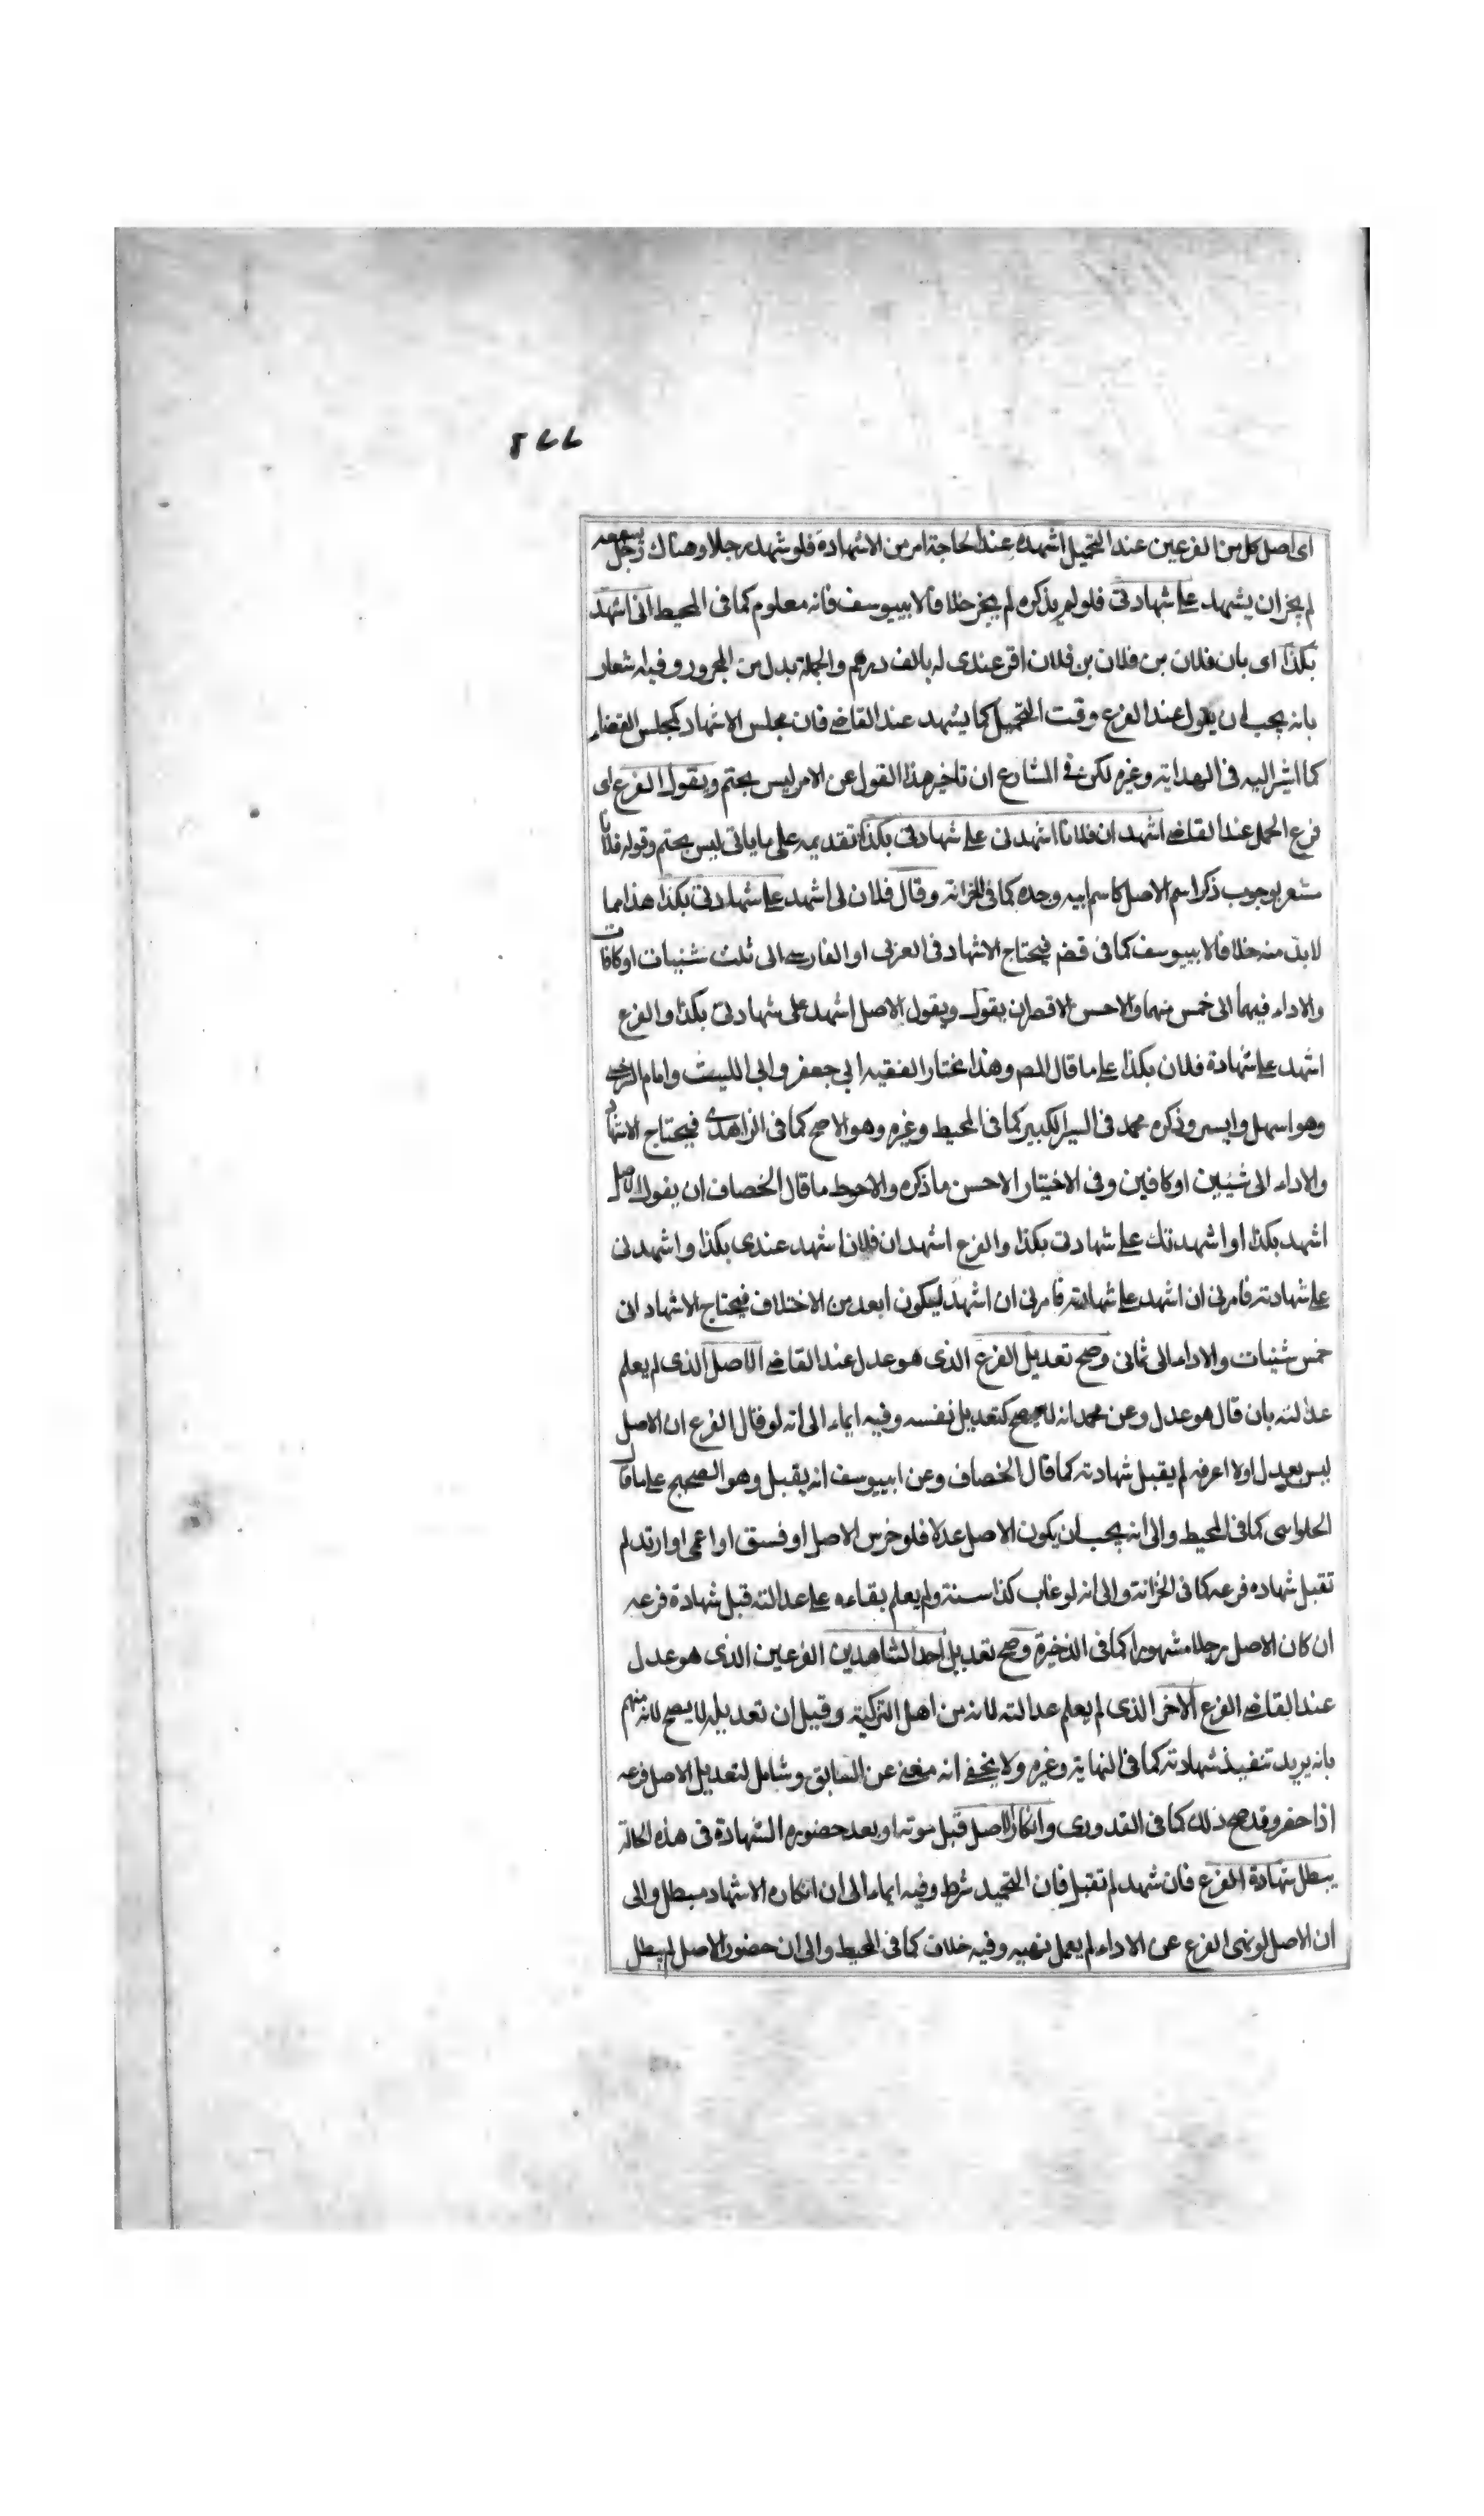 ٥٧٧
اى اصل كل من الفرعين عند التحميل اشهد عند الحاجة امر من الاشهادة فلو شهد رجلا وهناك رجل يسمعه
لم يجز ان يشهد على شهادتى فلو لم يذكره لم يجز خلافا لابييوسف فانه معلوم كما فى المحيط انى اشهد
بكذا اى بان فلان بن فلان بن فلان اقر عندى له بالف درهم والجملة بدل من المجرور وفيه اشعار
بانه يجب ان يقول عند الفرع وقت التحميل كما يشهد عند القاضى فان مجلس الاشهاد كمجلس القضاء
كما اشير اليه فى الهداية وغيره لكن فى المشارع ان تاخير هذا القول عن الامر ليس بحتم ويقول الفرع اى
فرع الحمل عند القاضى اشهد ان فلانا اشهدنى على شهادتى بكذا تقديمه على ما ياتى ليس بحتم وقوله فلانا
مشعر بوجوب ذكر اسم الاصل كاسم ابيه وجده كما فى الخزانة وقال فلان لى اشهد على شهادتى بكذا هذا مما
لا بد منه خلافا لابييوسف كما فى قضم فيحتاج الاشهاد فى العربى او الفارسى الى ثلث شينات او كافات
والاداء فيهما الى خمس منهما والاحسن الاقصر ان يقول ويقول الاصل اشهد على شهادتى بكذا والفرع
اشهد على شهادة فلان بكذا على ما قال المص وهذا مختار الفقيه ابى جعفر وابى الليث وامام السرخسى
وهو اسهل وايسر وذكره محمد فى السير الكبير كما فى المحيط وغيره وهو الاصح كما فى الزاهدى فيحتاج الاشهاد
والاداء الى شينين او كافين وفى الاختيار الاحسن ما ذكره والاحوط ما قال الخصاف ان يقول الاصل
اشهد بكذا او اشهدتك على شهادتى بكذا والفرع اشهد ان فلانا شهد عندى بكذا واشهدنى
على شهادته فامرنى ان اشهد على شهادته فامرنى ان اشهد ليكون ابعد من الاختلاف فيحتاج الاشهاد الى
خمس شينات والاداء الى ثمانى وصح تعديل الفرع الذى هو عدل عند القاضى الاصل الذى لم يعلم
عدالته بان قال هو عدل وعن محمد انه لا يصح كتعديل نفسه وفيه ايماء الى انه لو قال الفرع ان الاصل
ليس بعدل او لا اعرفه لم يقبل شهادته كما قال الخصاف وعن ابييوسف انه يقبل وهو الصحيح على ما قال
الحلواسى كما فى المحيط والى انه يجب ان يكون الاصل عدلا فلو خرس الاصل او فسق او اعمى او ارتد لم
تقبل شهاده فرعه كما فى الخزانة والى انه لو غاب كذا سنة ولم يعلم بقاءه على عدالته قبل شهادة فرعه
ان كان الاصل رجلا مشهورا كما فى الذخيرة وصح تعديل احد الشاهدين الفرعين الذى هو عدل
عند القاضى الفرع الاخر الذى لم يعلم عدالته لانه من اهل التزكية وقيل ان تعديله لا يصح لانه متهم
بانه يريد تنفيذ شهادته كما فى النهاية وغيره ولا يخفى انه مغنى عن السابق وشامل لتعديل الاصل فرعه
اذا حضر وقد صح ذلك كما فى القدورى وانكار الاصل قبل موته او بعد حضوره الشهادة فى هذه الحالة
يبطل شهادة الفرع فان شهد لم تقبل فان التحميد شرط وفيه ايماء الى ان انكاره الاشهاد مبطل والى
ان الاصل لو نهى الفرع عن الاداء لم يعمل نهيه وفيه خلاف كما فى المحيط والى ان حضور الاصل لم يبطل